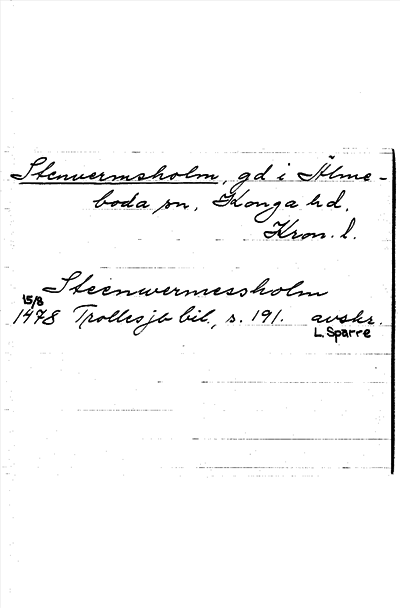 Stenvermsholm, gd i Älme-
boda sn, Konga hd.
Kron. l.
Steenwermessholm
15/8
1478 Trollesjb bil., s. 191. avskr.
L. Sparre